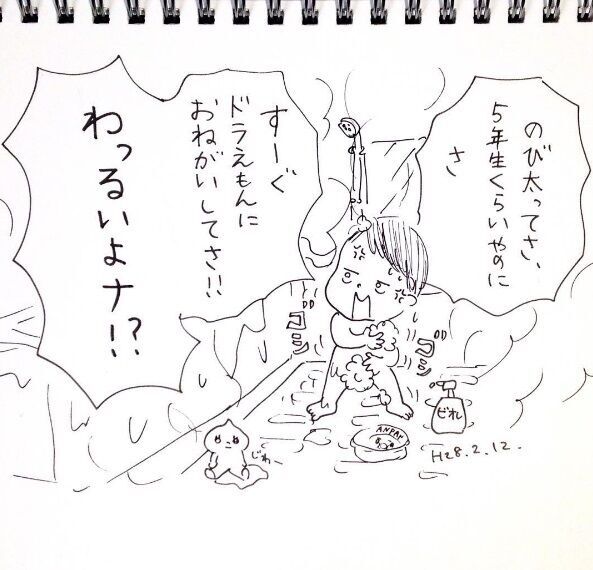 のび太ってさ、
5年生くらいやのに
さ
すーぐ
ドラえもんに
おねがいしてさ!!
わっるいよナ!?
ゴシ
ゴシ
じわー
ANPAN
ビオレ
H28.2.12.